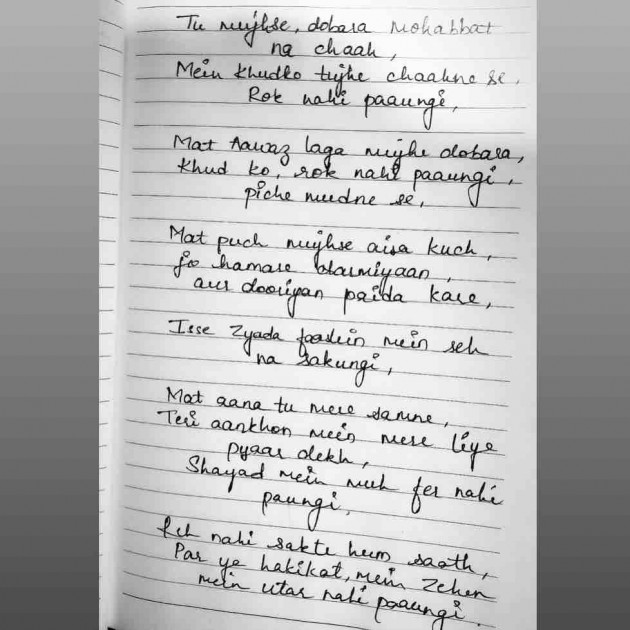 Tu mujhse, dobara Mohabbat
na chaah,
Mein khudko tujhe chaahne se,
Rok nahi paaungi,
Mat Aawaz laga mujhe dobara,
khud ko, rok nahi paaungi,
piche mudne se,
Mat puch mujhse aisa kuch,
Jo hamare darmiyaan,
aur dooriyan paida kare,
Isse zyada faaslein mein seh
na sakungi,
Mat aana tu mere samne,
Teri aankhon mein mere liye
pyaar dekh,
Shayad mein muh fer nahi
paungi,
Reh nahi sakte hum saath,
Par ye hakikat, mein zehen
mein utar nahi paaungi.